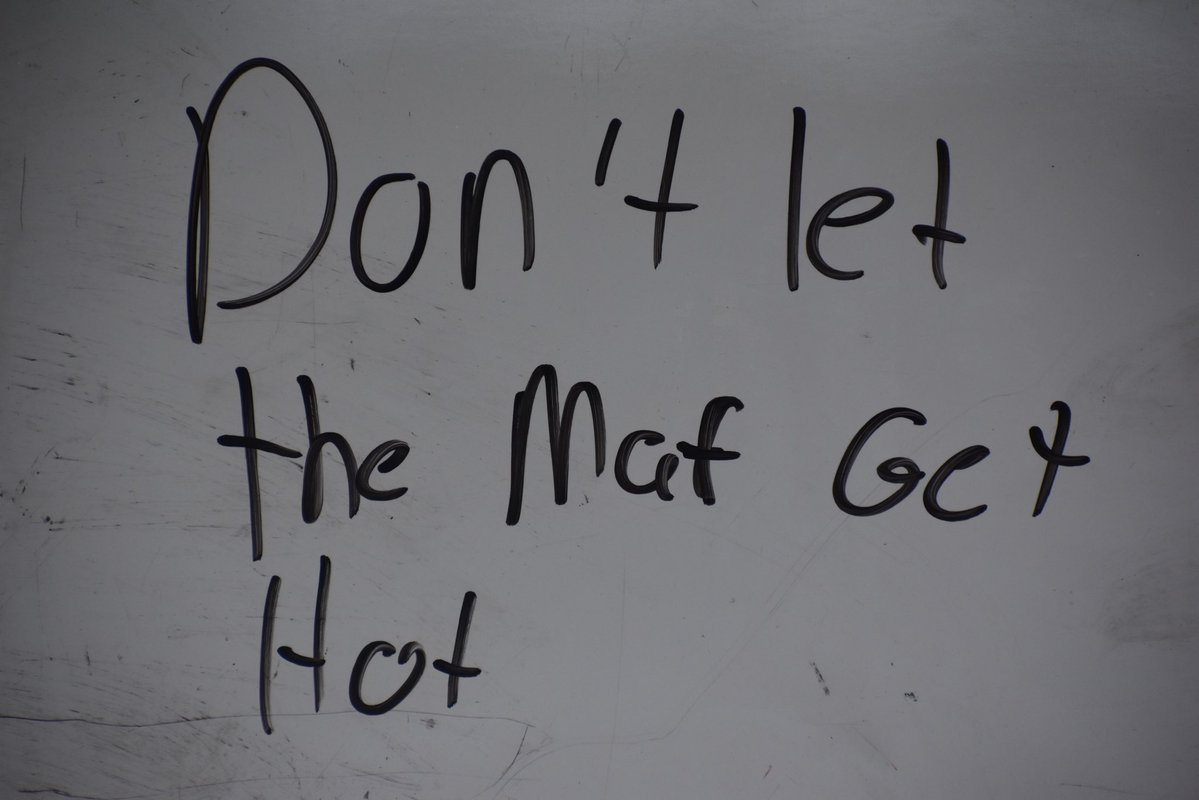 Don't let
the Maf Get
Hot